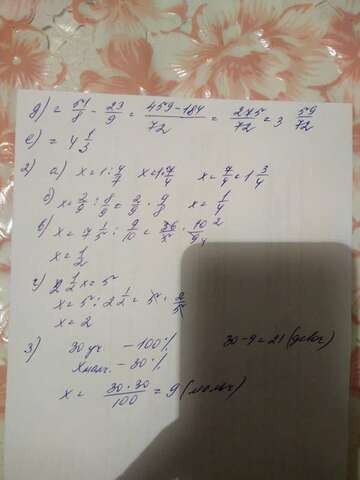 д) = 51/8 - 23/9 = (459-184)/72 = 275/72 = 3 59/72
е) = 4 1/3
2) а) x = 1 : 4/7 x = 1·7/4 x = 7/4 = 1 3/4
б) x = 2/9 : 8/9 = 2/9 · 9/8 x = 1/4
в) x = 7 1/5 : 9/10 = 36/5 · 10/9
x = 1/2
г) 2 1/2 x = 5
x = 5 : 2 1/2 = 5 · 2/5
x = 2
3) 30 уч - 100%
x мал. - 30%
30-9=21 (девоч)
x = 30·30/100 = 9 (мальч)